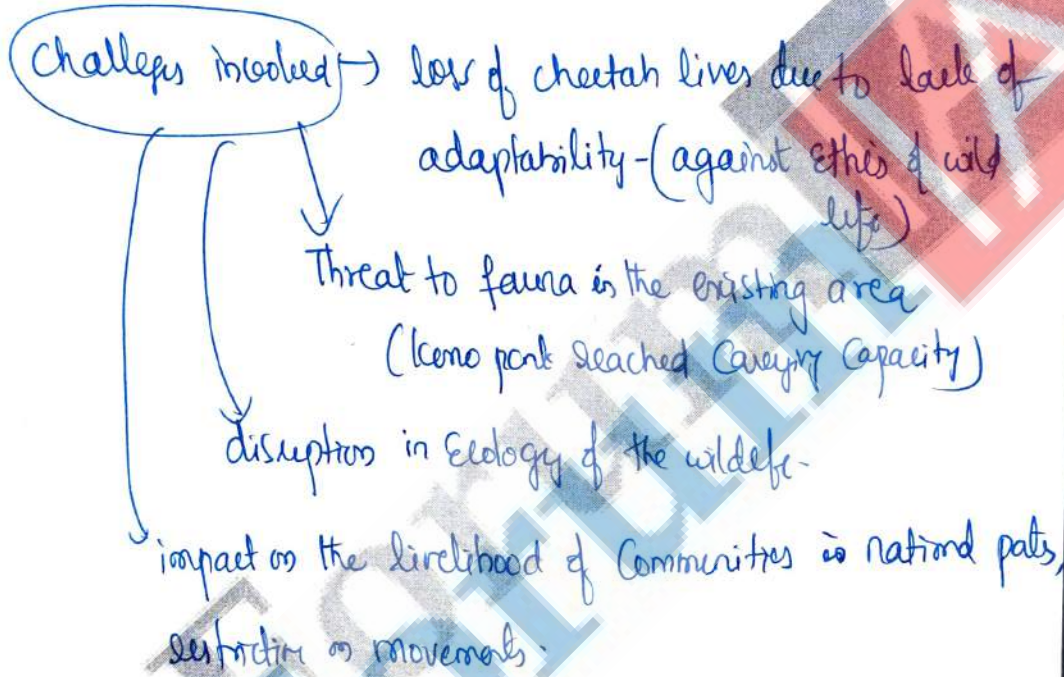 Challeges involved → loss of cheetah lives due to lack of
adaptability - (against Ethis of wild
life)
Threat to fauna in the existing area
(Keno park reached Carrying Capacity)
disruption in Ecology of the wildlife.
impact on the livelihood of Communities in national paks,
restriction on movements.
Forum IAS